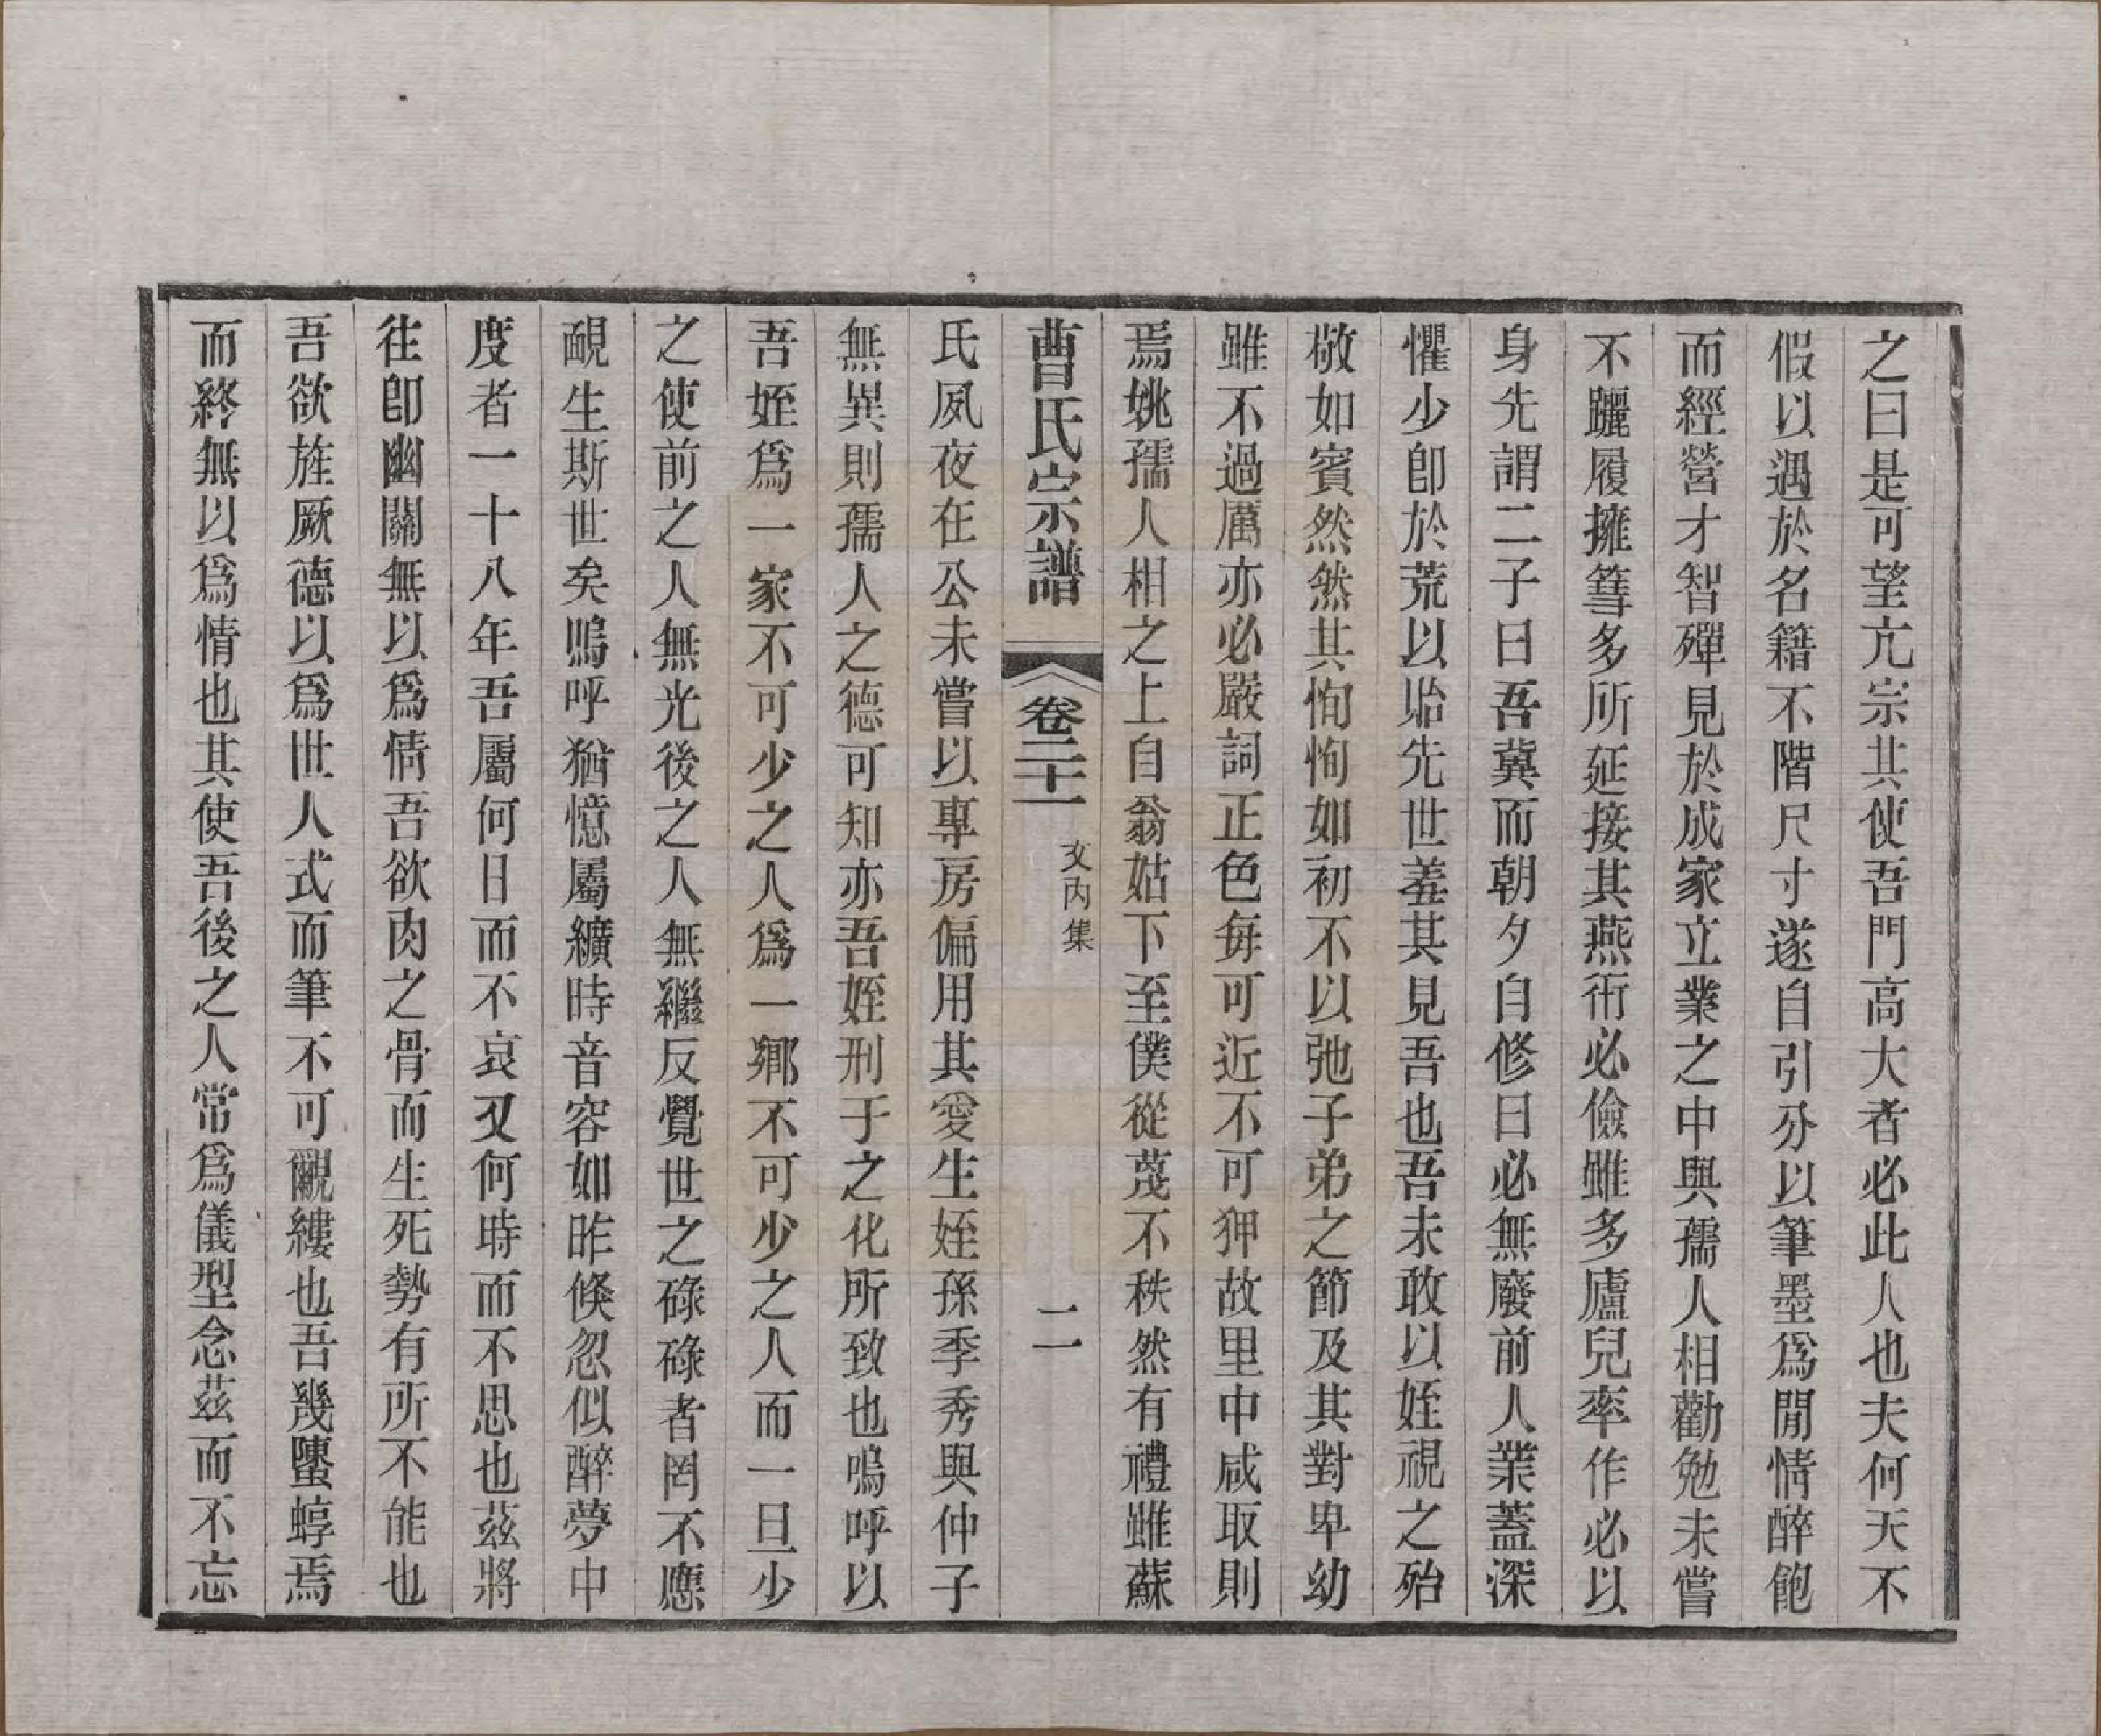 之曰是可望亢宗其使吾門高大者必此人也夫何天不
假以遇於名籍不階尺寸遂自引分以筆墨爲閒情醉飽
而經營才智殫見於成家立業之中與孺人相勸勉未嘗
不躧履擁篲多所延接其燕衎必儉雖多廬兒率作必以
身先謂二子曰吾冀而朝夕自修曰必無廢前人業蓋深
懼少卽於荒以貽先世羞其見吾也吾未敢以姪視之殆
敬如賓然然其恂恂如初不以弛子弟之節及其對卑幼
雖不過厲亦必嚴詞正色每可近不可狎故里中咸取則
焉姚孺人相之上自翁姑下至僕從蔑不秩然有禮雖蘇
曹氏宗譜 卷二十一 文內集 二
氏夙夜在公未嘗以專房偏用其愛生姪孫季秀與仲子
無異則孺人之德可知亦吾姪刑于之化所致也嗚呼以
吾姪爲一家不可少之人爲一鄉不可少之人而一旦少
之使前之人無光後之人無繼反覺世之碌碌者罔不應
靦生斯世矣嗚呼猶憶屬纊時音容如昨倏忽似醉夢中
度者一十八年吾屬何日而不哀又何時而不思也茲將
往卽幽關無以爲情吾欲肉之骨而生死勢有所不能也
吾欲旌厥德以爲世人式而筆不可覼縷也吾幾墮蜳焉
而終無以爲情也其使吾後之人常爲儀型念茲而不忘